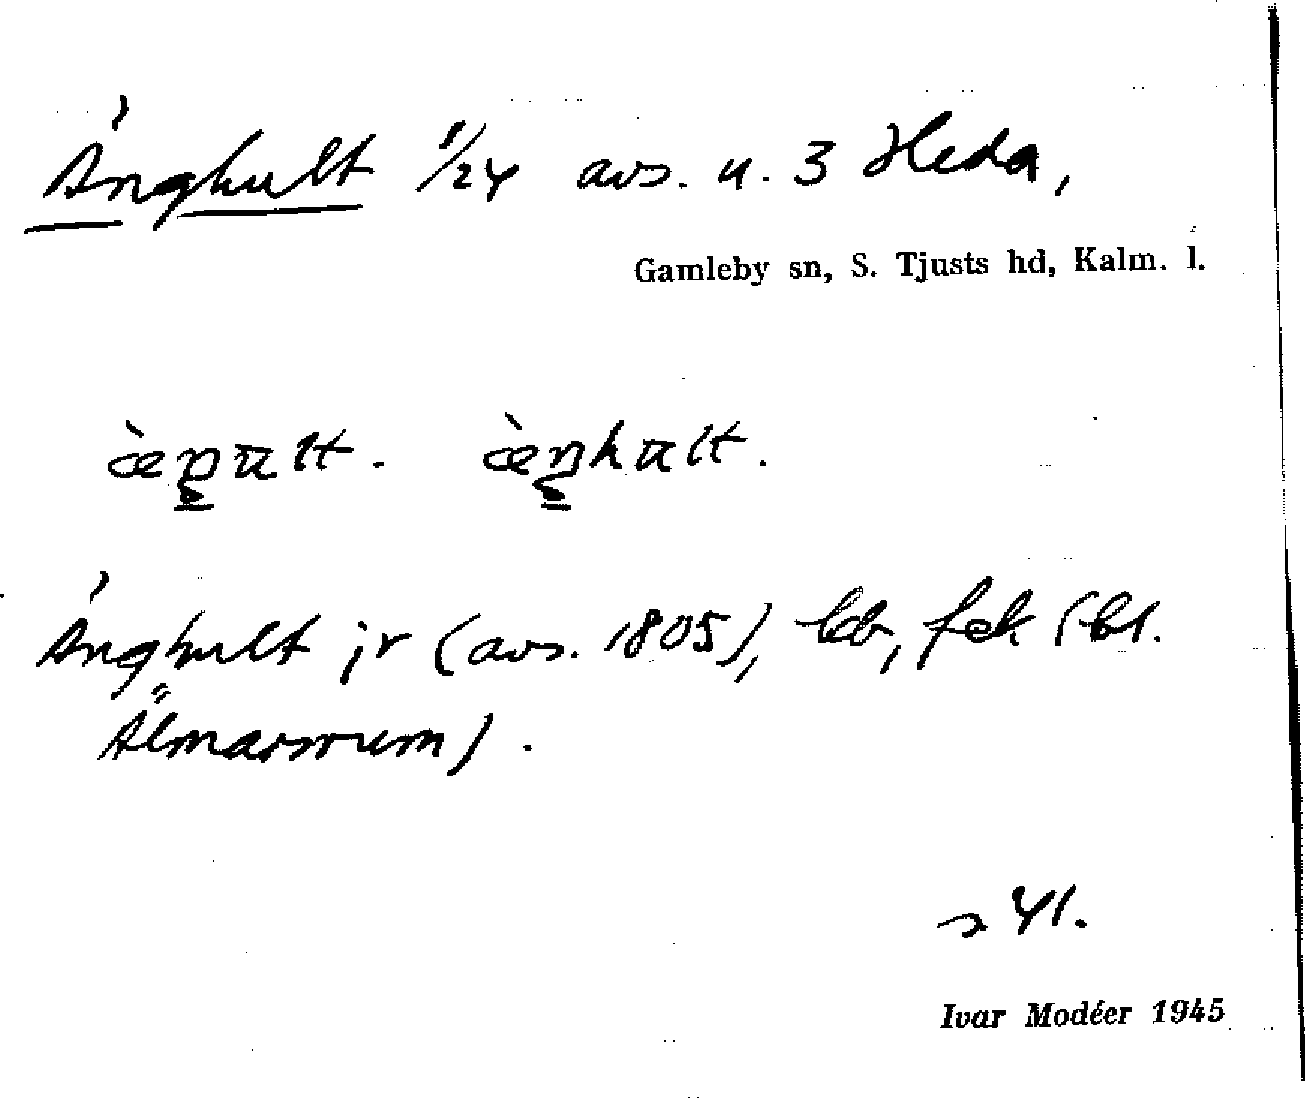 Änghult 1/24 avs. u. 3 Heda,
Gamleby sn, S. Tjusts hd, Kalm. l.
Änghult jr (avs. 1805), lb, fek (bl.
Älmarnum).
s 41.
Ivar Modéer 1945